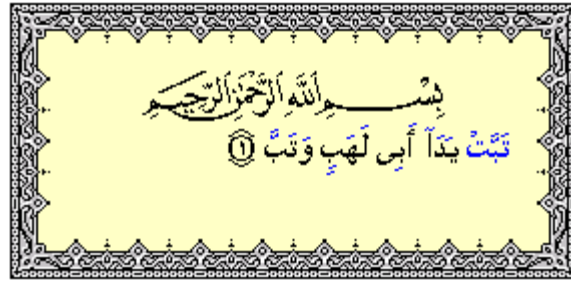 بِسْمِ اللَّهِ الرَّحْمَٰنِ الرَّحِيمِ
تَبَّتْ يَدَآ أَبِى لَهَبٍ وَتَبَّ ١